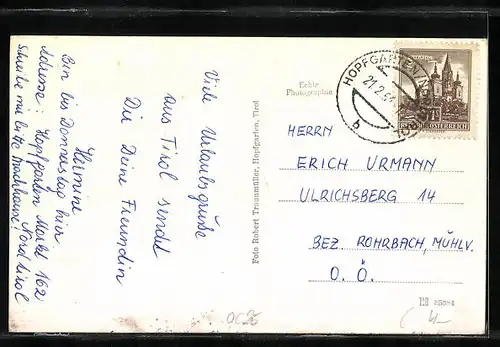 Viele Urlaubsgrüße
aus Tirol sendet
Dir Deine Freundin
Hermine
Bin bis Donnerstag hier
Adresse: Hopfgarten Markt 162
Schreibe mir bitte nachhause! Nordtirol
Foto Robert Traunmüller, Hopfgarten, Tirol
Echte
Photographie
HOPFGARTEN
21.2.5
b
HERRN
ERICH URMANN
ULRICHSBERG 14
BEZ. ROHRBACH, MÜHLV.
O. Ö.